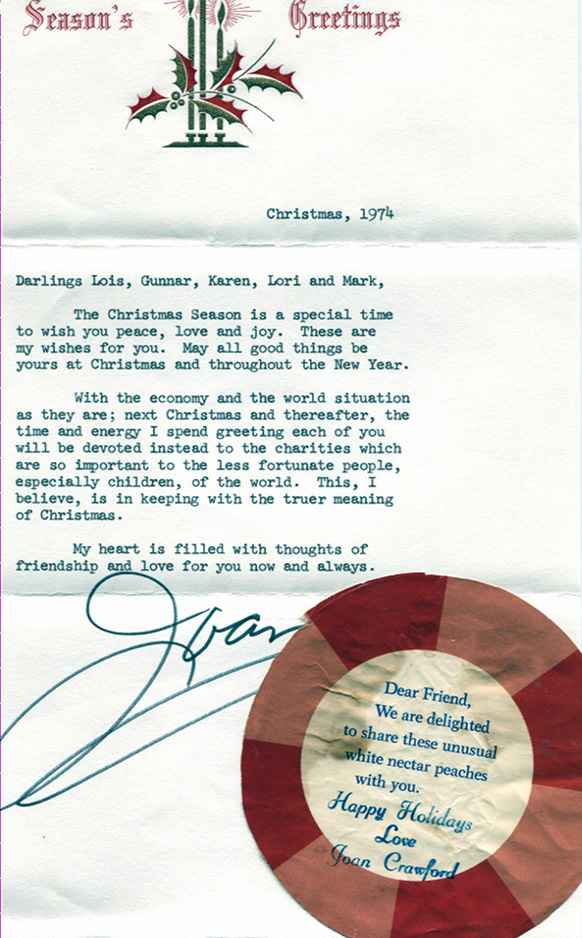 Season's Greetings
Christmas, 1974
Darlings Lois, Gunnar, Karen, Lori and Mark,
The Christmas Season is a special time
to wish you peace, love and joy. These are
my wishes for you. May all good things be
yours at Christmas and throughout the New Year.
With the economy and the world situation
as they are; next Christmas and thereafter, the
time and energy I spend greeting each of you
will be devoted instead to the charities which
are so important to the less fortunate people,
especially children, of the world. This, I
believe, is in keeping with the truer meaning
of Christmas.
My heart is filled with thoughts of
friendship and love for you now and always.
Joan
Dear Friend,
We are delighted
to share these unusual
white nectar peaches
with you.
Happy Holidays
Love
Joan Crawford